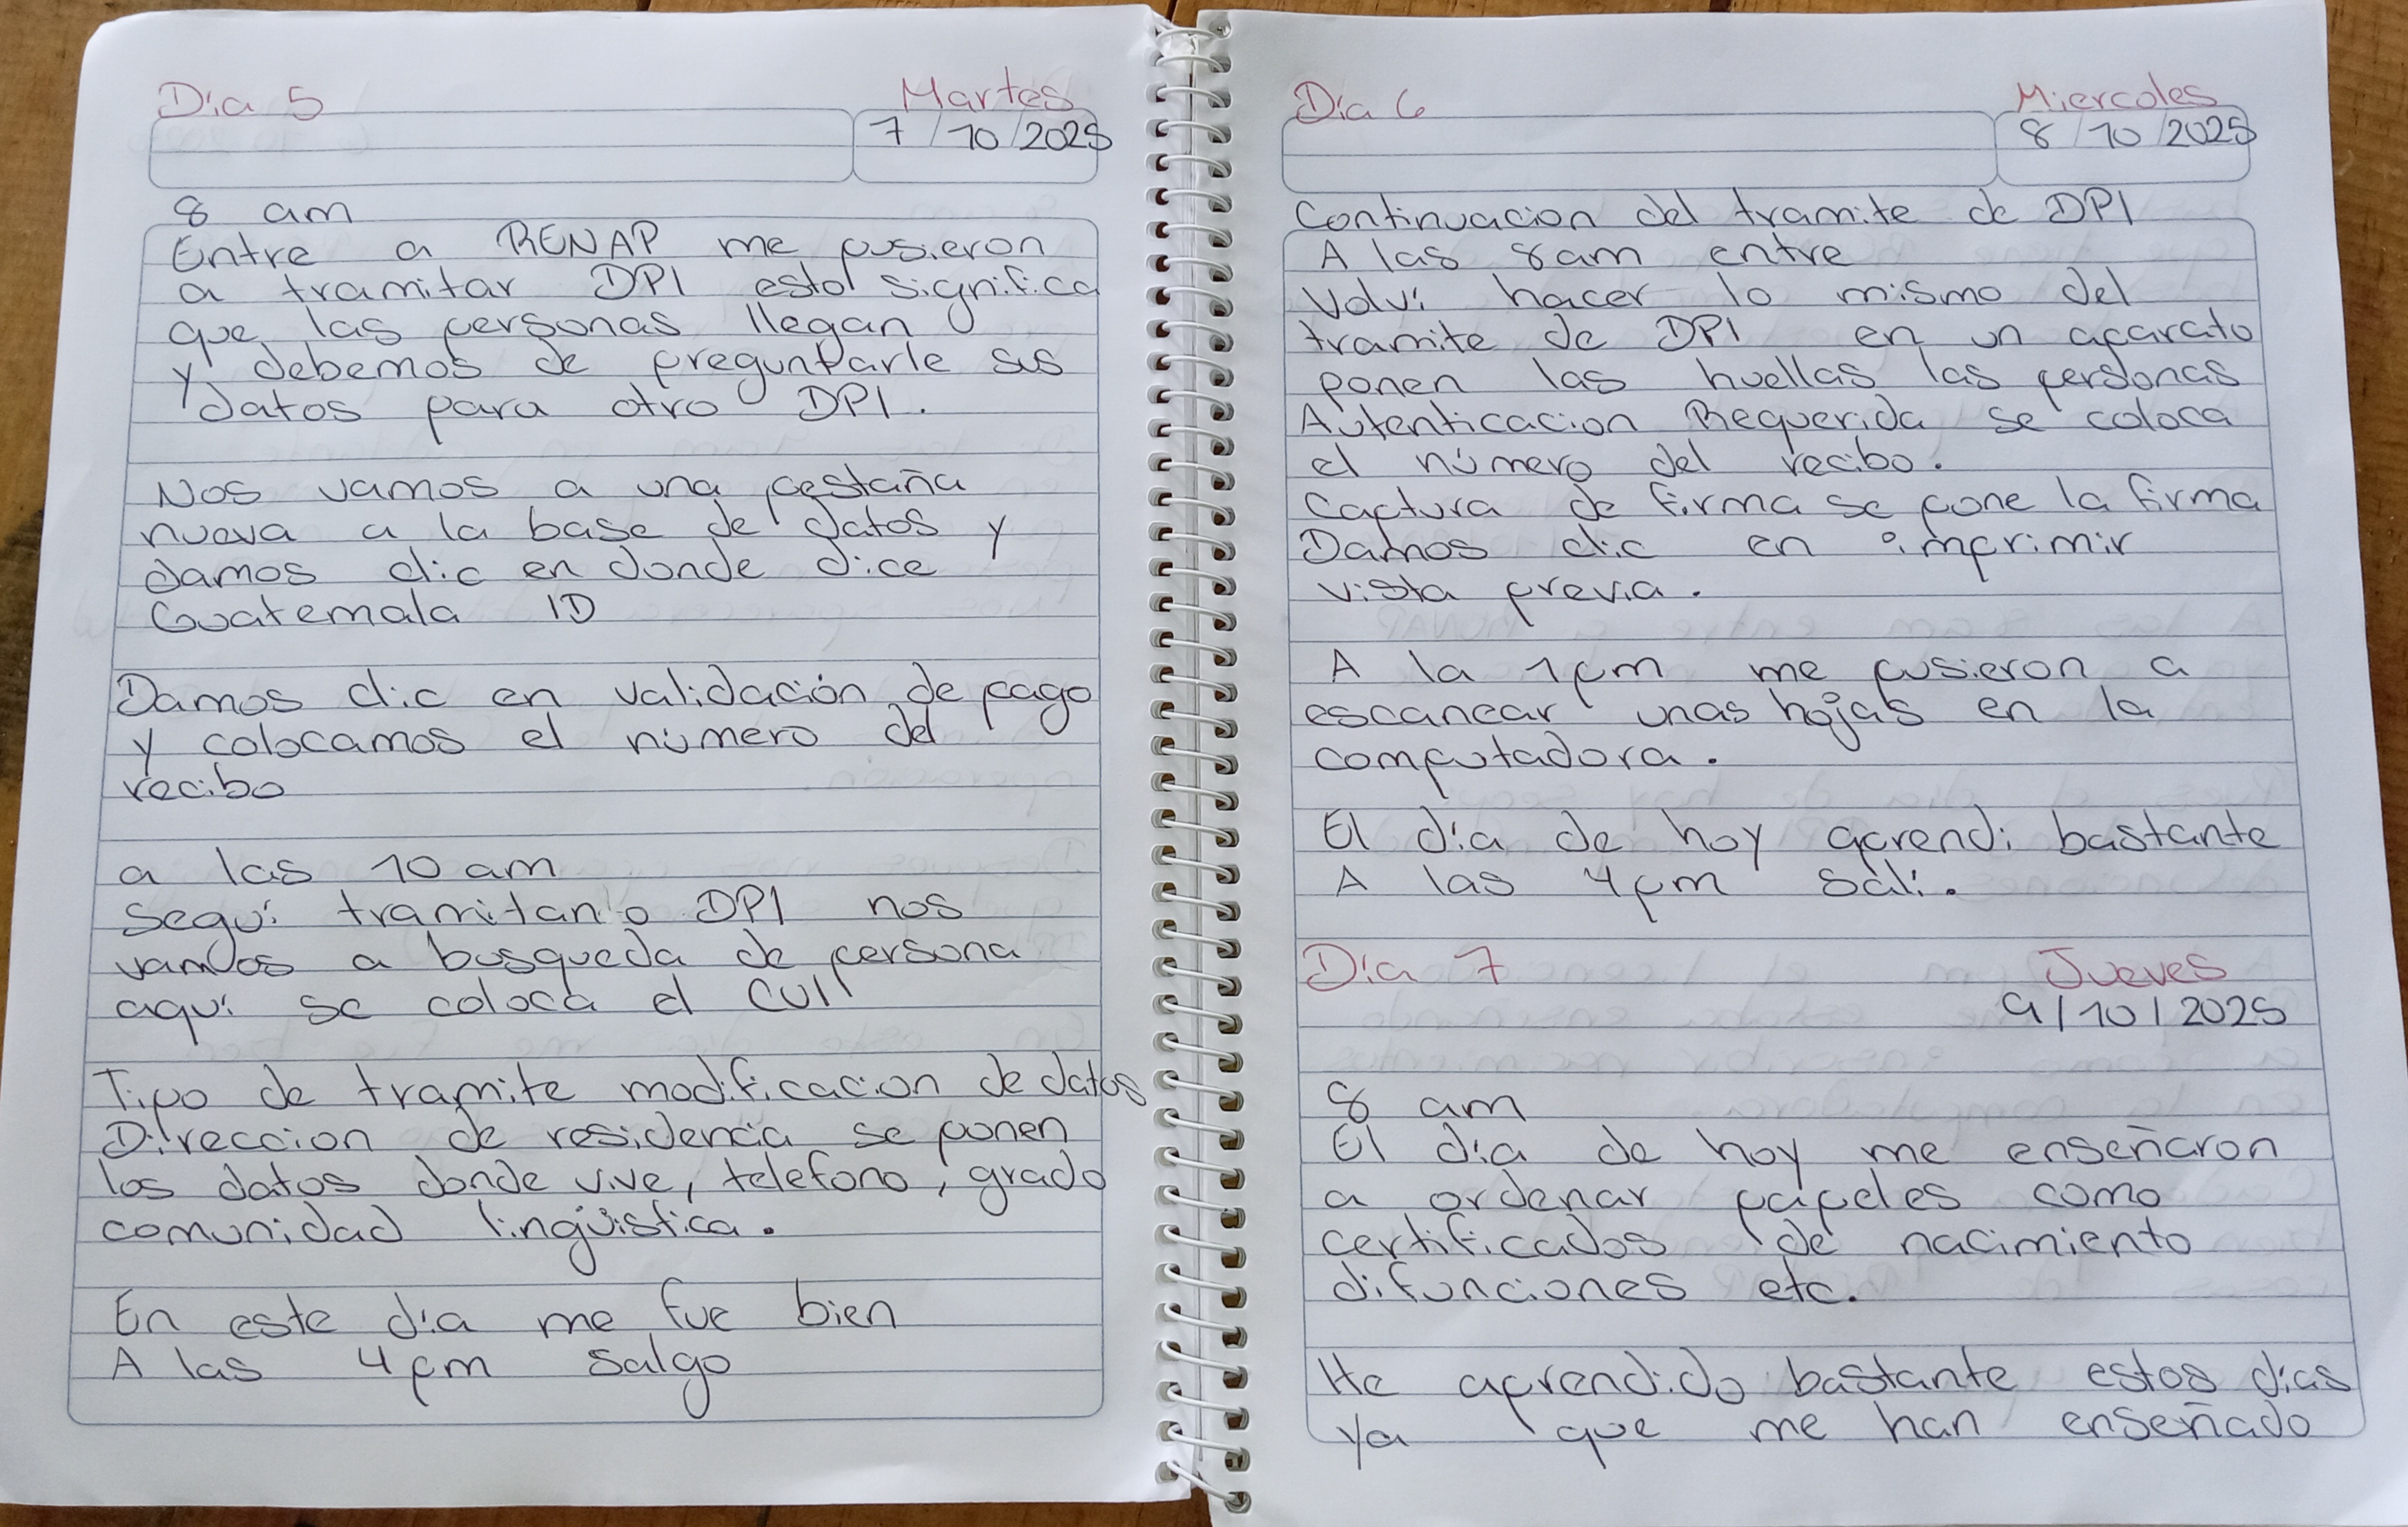 Día 5
Martes
7/10/2025
8 am
Entre a RENAP me pusieron
a tramitar DPI esto significa
que las personas llegan
y debemos de preguntarle sus
datos para otro DPI.
Nos vamos a una pestaña
nueva a la base de datos y
damos clic en donde dice
Guatemala ID
Damos clic en validación de pago
y colocamos el número del
recibo
a las 10 am
Seguí tramitando DPI nos
vamos a busqueda de persona
aquí se coloca el CUI
Tipo de tramite modificacion de datos
Direccion de residencia se ponen
los datos donde vive, telefono, grado
comunidad lingüistica.
En este día me fue bien
A las 4 pm salgo
Día 6
Miercoles
8/10/2025
Continuacion del tramite de DPI
A las 8am entre
Volví hacer lo mismo del
tramite de DPI en un aparato
ponen las huellas las personas
Autenticacion Requerida se coloca
el número del recibo.
Captura de firma se pone la firma
Damos clic en imprimir
vista previa.
A la 1pm me pusieron a
escanear unas hojas en la
computadora.
El día de hoy aprendi bastante
A las 4pm salí.
Día 7
Jueves
9/10/2025
8 am
El día de hoy me enseñaron
a ordenar papeles como
certificados de nacimiento
difunciones etc.
He aprendido bastante estos días
ya que me han enseñado